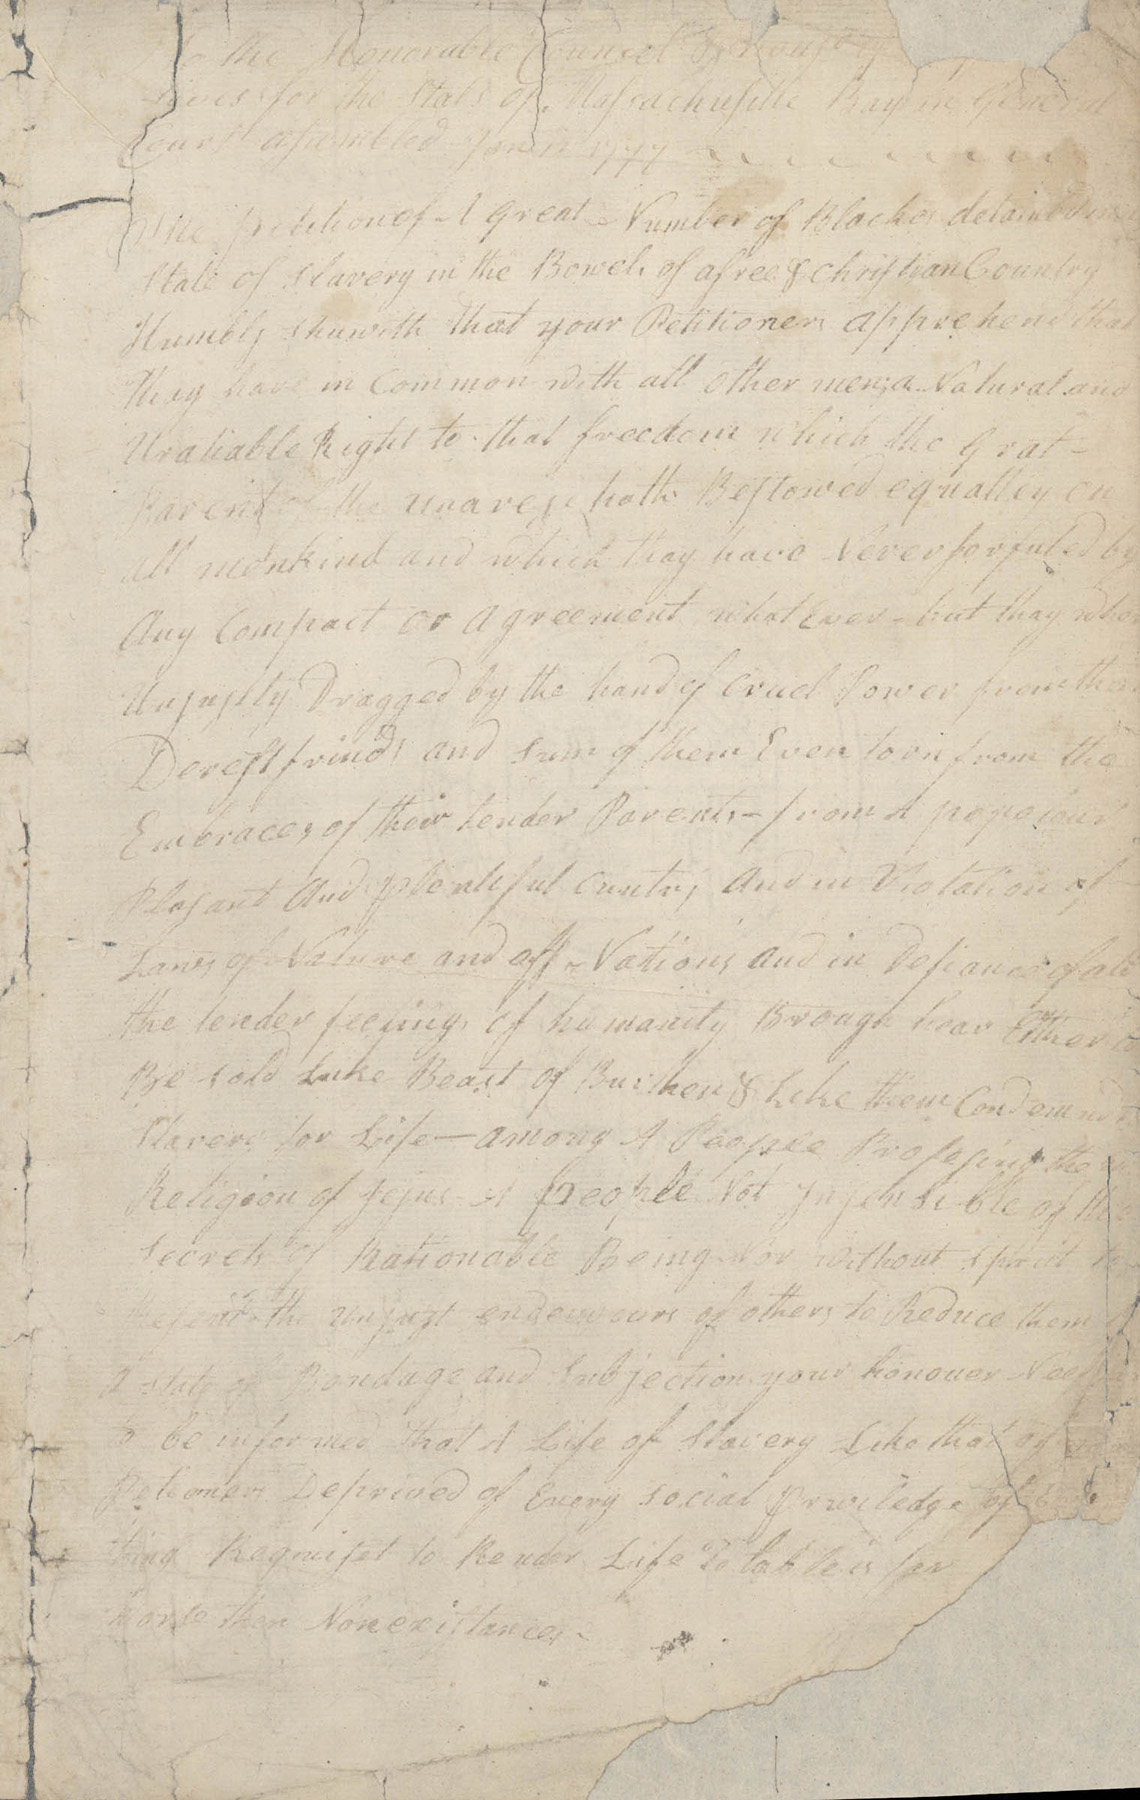 To the Honorable Counsel & House of
tives for the State of Massachusitte Bay in General
Court assembled Jan 13 1777
The petition of A Great Number of Blackes detained in
State of Slavery in the Bowels of a free & christian Country
Humbly shuwith that your Petitioners apprehend that
Thay have in Common with all other men a Natural and
Unaliable Right to that freedom which the Grat
Parent of the Unavese hath Bestowed equalley on
all menkind and which thay have Never forfuted by
Any Compact or Agreement whatEver - but thay wher
Unjustly Dragged by the hand of cruel Power from their
Derest frinds and sum of them Even torn from the
Embraces of their tender Parents - from A popolous
Plasant And plentiful cuntry And in Violation of
Laws of Nature and off Nations And in Defiance of all
the tender feelings of humanity Brough hear Either to
Be sold Like Beast of Burthen & Like them Condemnd to
Slavery for Life - among A People Profesing the
Religion of Jesus A people Not Insensible of the
Secrets of Rationable Being Nor without spirit to
Resent the unjust endeavours of others to Reduce them
A state of Bondage and Subjection your honouer Need
to be informed that A Life of Slavery Like that of
Petioners Deprived of Every social priviledge of
thing Requiset to Render Life Tolable is far
worse then Nonexistance -